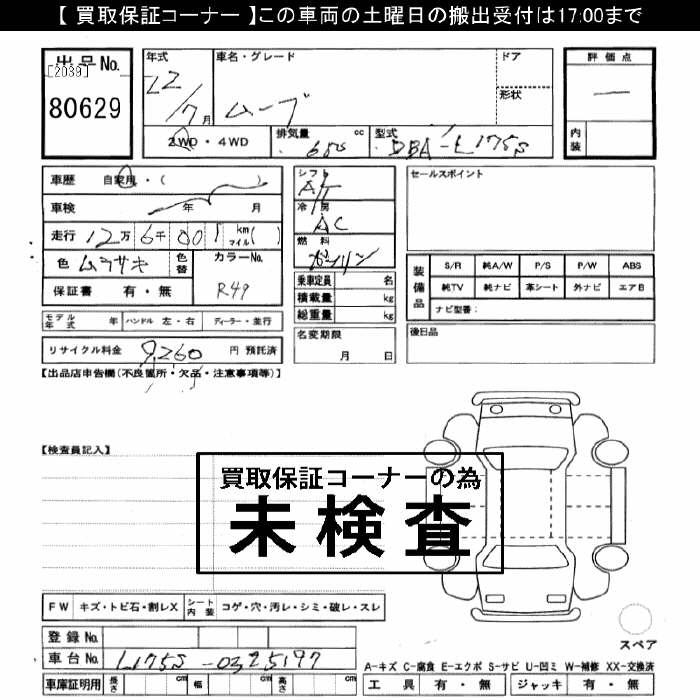 【 買取保証コーナー 】この車両の土曜日の搬出受付は17:00まで
出品No.
[2039]
80629
年式
22/7月
車名・グレード
ムーブ
ドア
形状
評価点
内装
2WD・4WD
排気量 cc
660
型式
DBA-L175S
車歴 自家用・( )
車検 年 月
走行 12万 6千 001 km マイル( )
色 ムラサキ
色替
カラーNo.
R49
保証書 有・無
シフト
AT
冷房
AC
燃料
ガソリン
乗車定員 名
積載量 kg
総重量 kg
セールスポイント
装備品
S/R 純A/W P/S P/W ABS
純TV 純ナビ 革シート 外ナビ エアB
ナビ型番:
モデル年式 年 ハンドル 左・右 ディーラー・並行
リサイクル料金 9,260 円 預託済
名変期限
月 日
後日品
【出品店申告欄(不良箇所・欠品・注意事項等)】
【検査員記入】
買取保証コーナーの為
未検査
FW キズ・トビ石・割レX シート内装 コゲ・穴・汚レ・シミ・破レ・スレ
登録No.
車台No. L175S-0325197
車庫証明用 長さ cm 幅 cm 高さ cm
スペア
A-キズ C-腐食 E-エクボ S-サビ U-凹ミ W-補修 XX-交換済
工具 有・無 ジャッキ 有・無